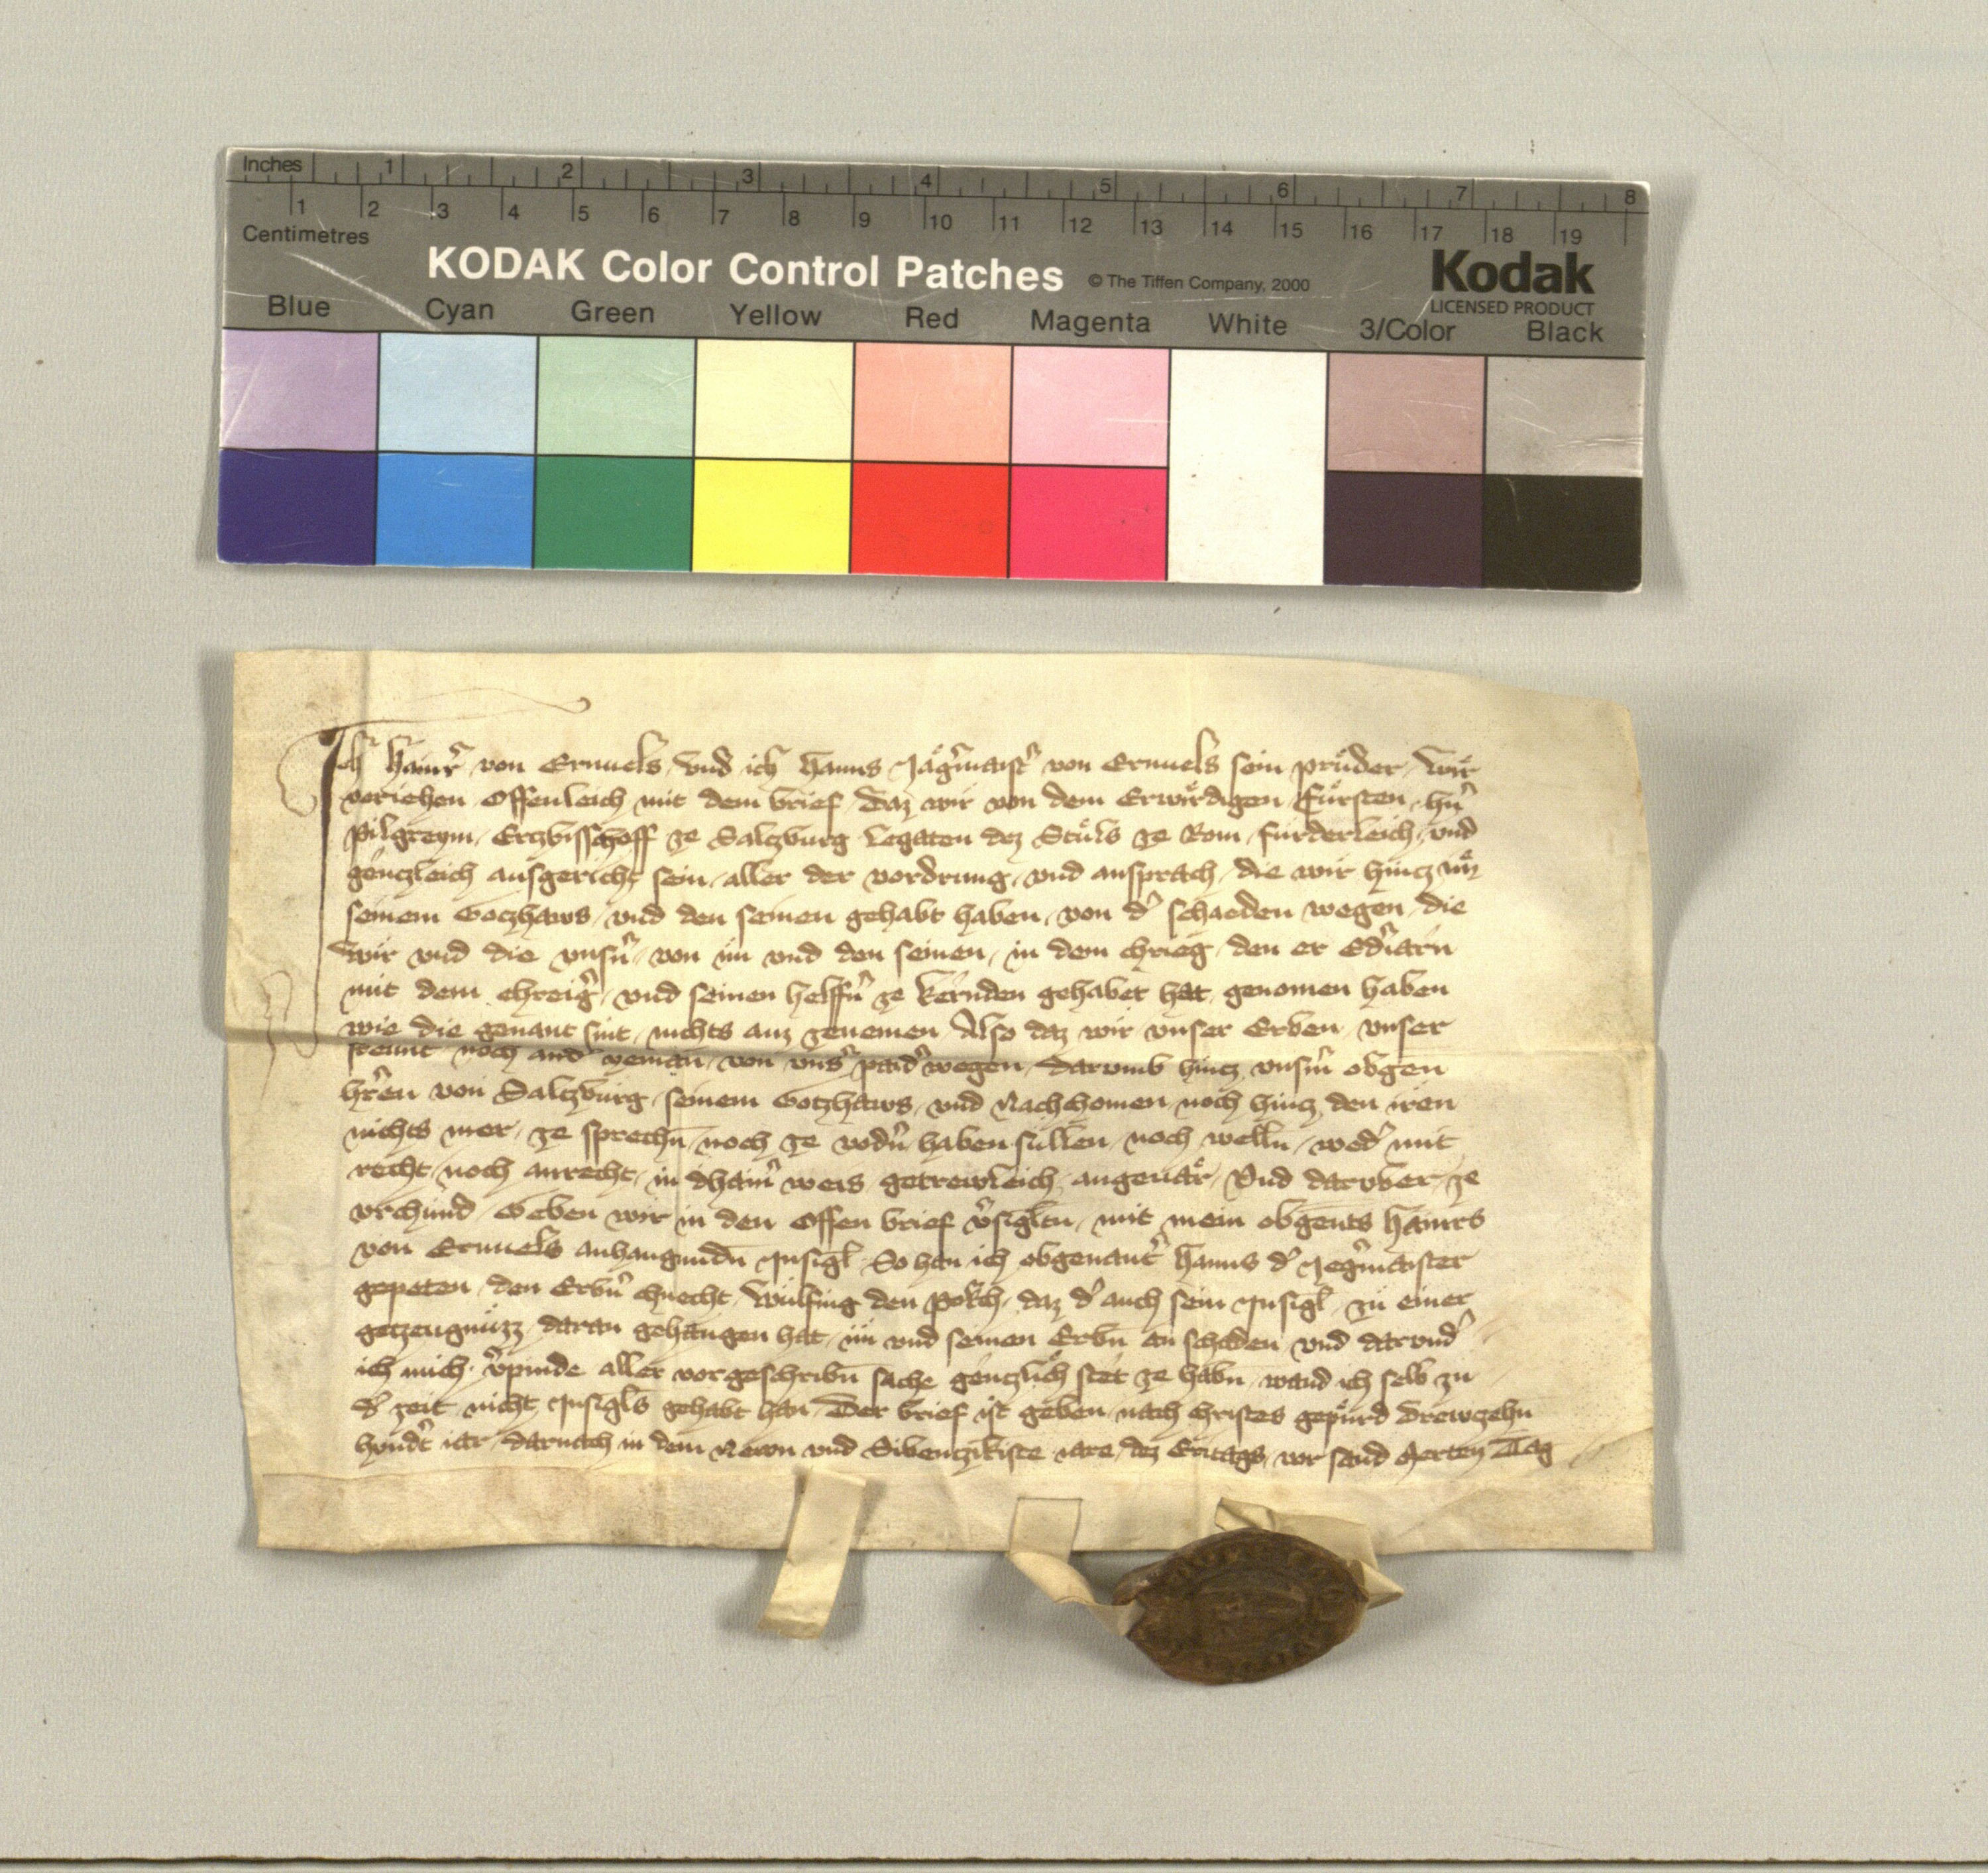 Inches 1 2 3 4 5 6 7 8
1 2 3 4 5 6 7 8 9 10 11 12 13 14 15 16 17 18 19
Centimetres
KODAK Color Control Patches © The Tiffen Company, 2000 Kodak
LICENSED PRODUCT
Blue Cyan Green Yellow Red Magenta White 3/Color Black
Ich Hainr̄ von Ernuels vnd ich Hanns Jäg̾maist̾ von Ernuels sein průder Wir
veriehen Offenleich mit dem brief Daz wir von dem Erwirdigen Fürsten hn̄
Pilgreym Ertzbisschoff ze Saltzburg Legaten dez Stůls ze Rom fürderleich vnd
gentzleich ausgericht sein aller der vordrung vnd ansprach die wir hintz im
seinem Gotzhaws vnd den seinen gehabt haben von d̾ schaeden wegen die
wir vnd die vnsn̄ von im vnd den seinen in dem chrieg den er
mit dem chreig̾ vnd seinen helffn̄ ze kernden gehabet hat genomen haben
wie die genant sint nichts auz genemen Also daz wir vnser Erben vnser
freunt noch and̾ yeman von vns̾ paid̾ wegen darumb hintz vnsm̄ obgen
hr̄en von Saltzburg seinem Gotzhaws vnd Nachchomen noch hintz den iren
nichts mer ze sprechn̄ noch ze vodn̄ haben sullen noch welln wed̾ mit
recht noch anrecht in dhain̄ weis getrewleich angeuär Vnd darvber ze
vrchund Geben wir in den Offen brief v̾sigltn mit mein obgents Hainrs
von Ernuels anhangundn̄ Insigl So han ich obgenant̾ Hanns d̾ Jeg̾maister
gepeten den Erbn̄ chnecht Wülfing den daz d̾ auch sein Insigl zu einer
getzeugnüzz daran gehangen hat im vnd seinen Erbn̄ an schaden vnd darvnd̾
ich mich v̾pinde aller vorgeschribn̄ sache gentzlich stet ze habn wand ich selb zu
d̾ zeit nicht Insigls gehabt han Der brief ist geben nach Christes gepürd Drewzehn
hundt̾ iar darnach in dem Newn vnd Sibentzikiste iare dez Eritags vor sand Merten Tag